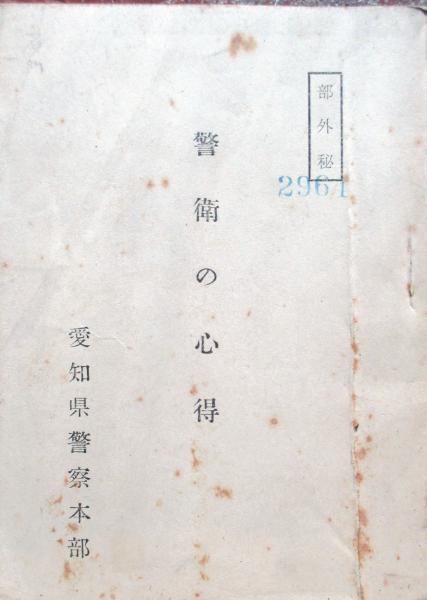 部外秘
2961
警衛の心得
愛知県警察本部